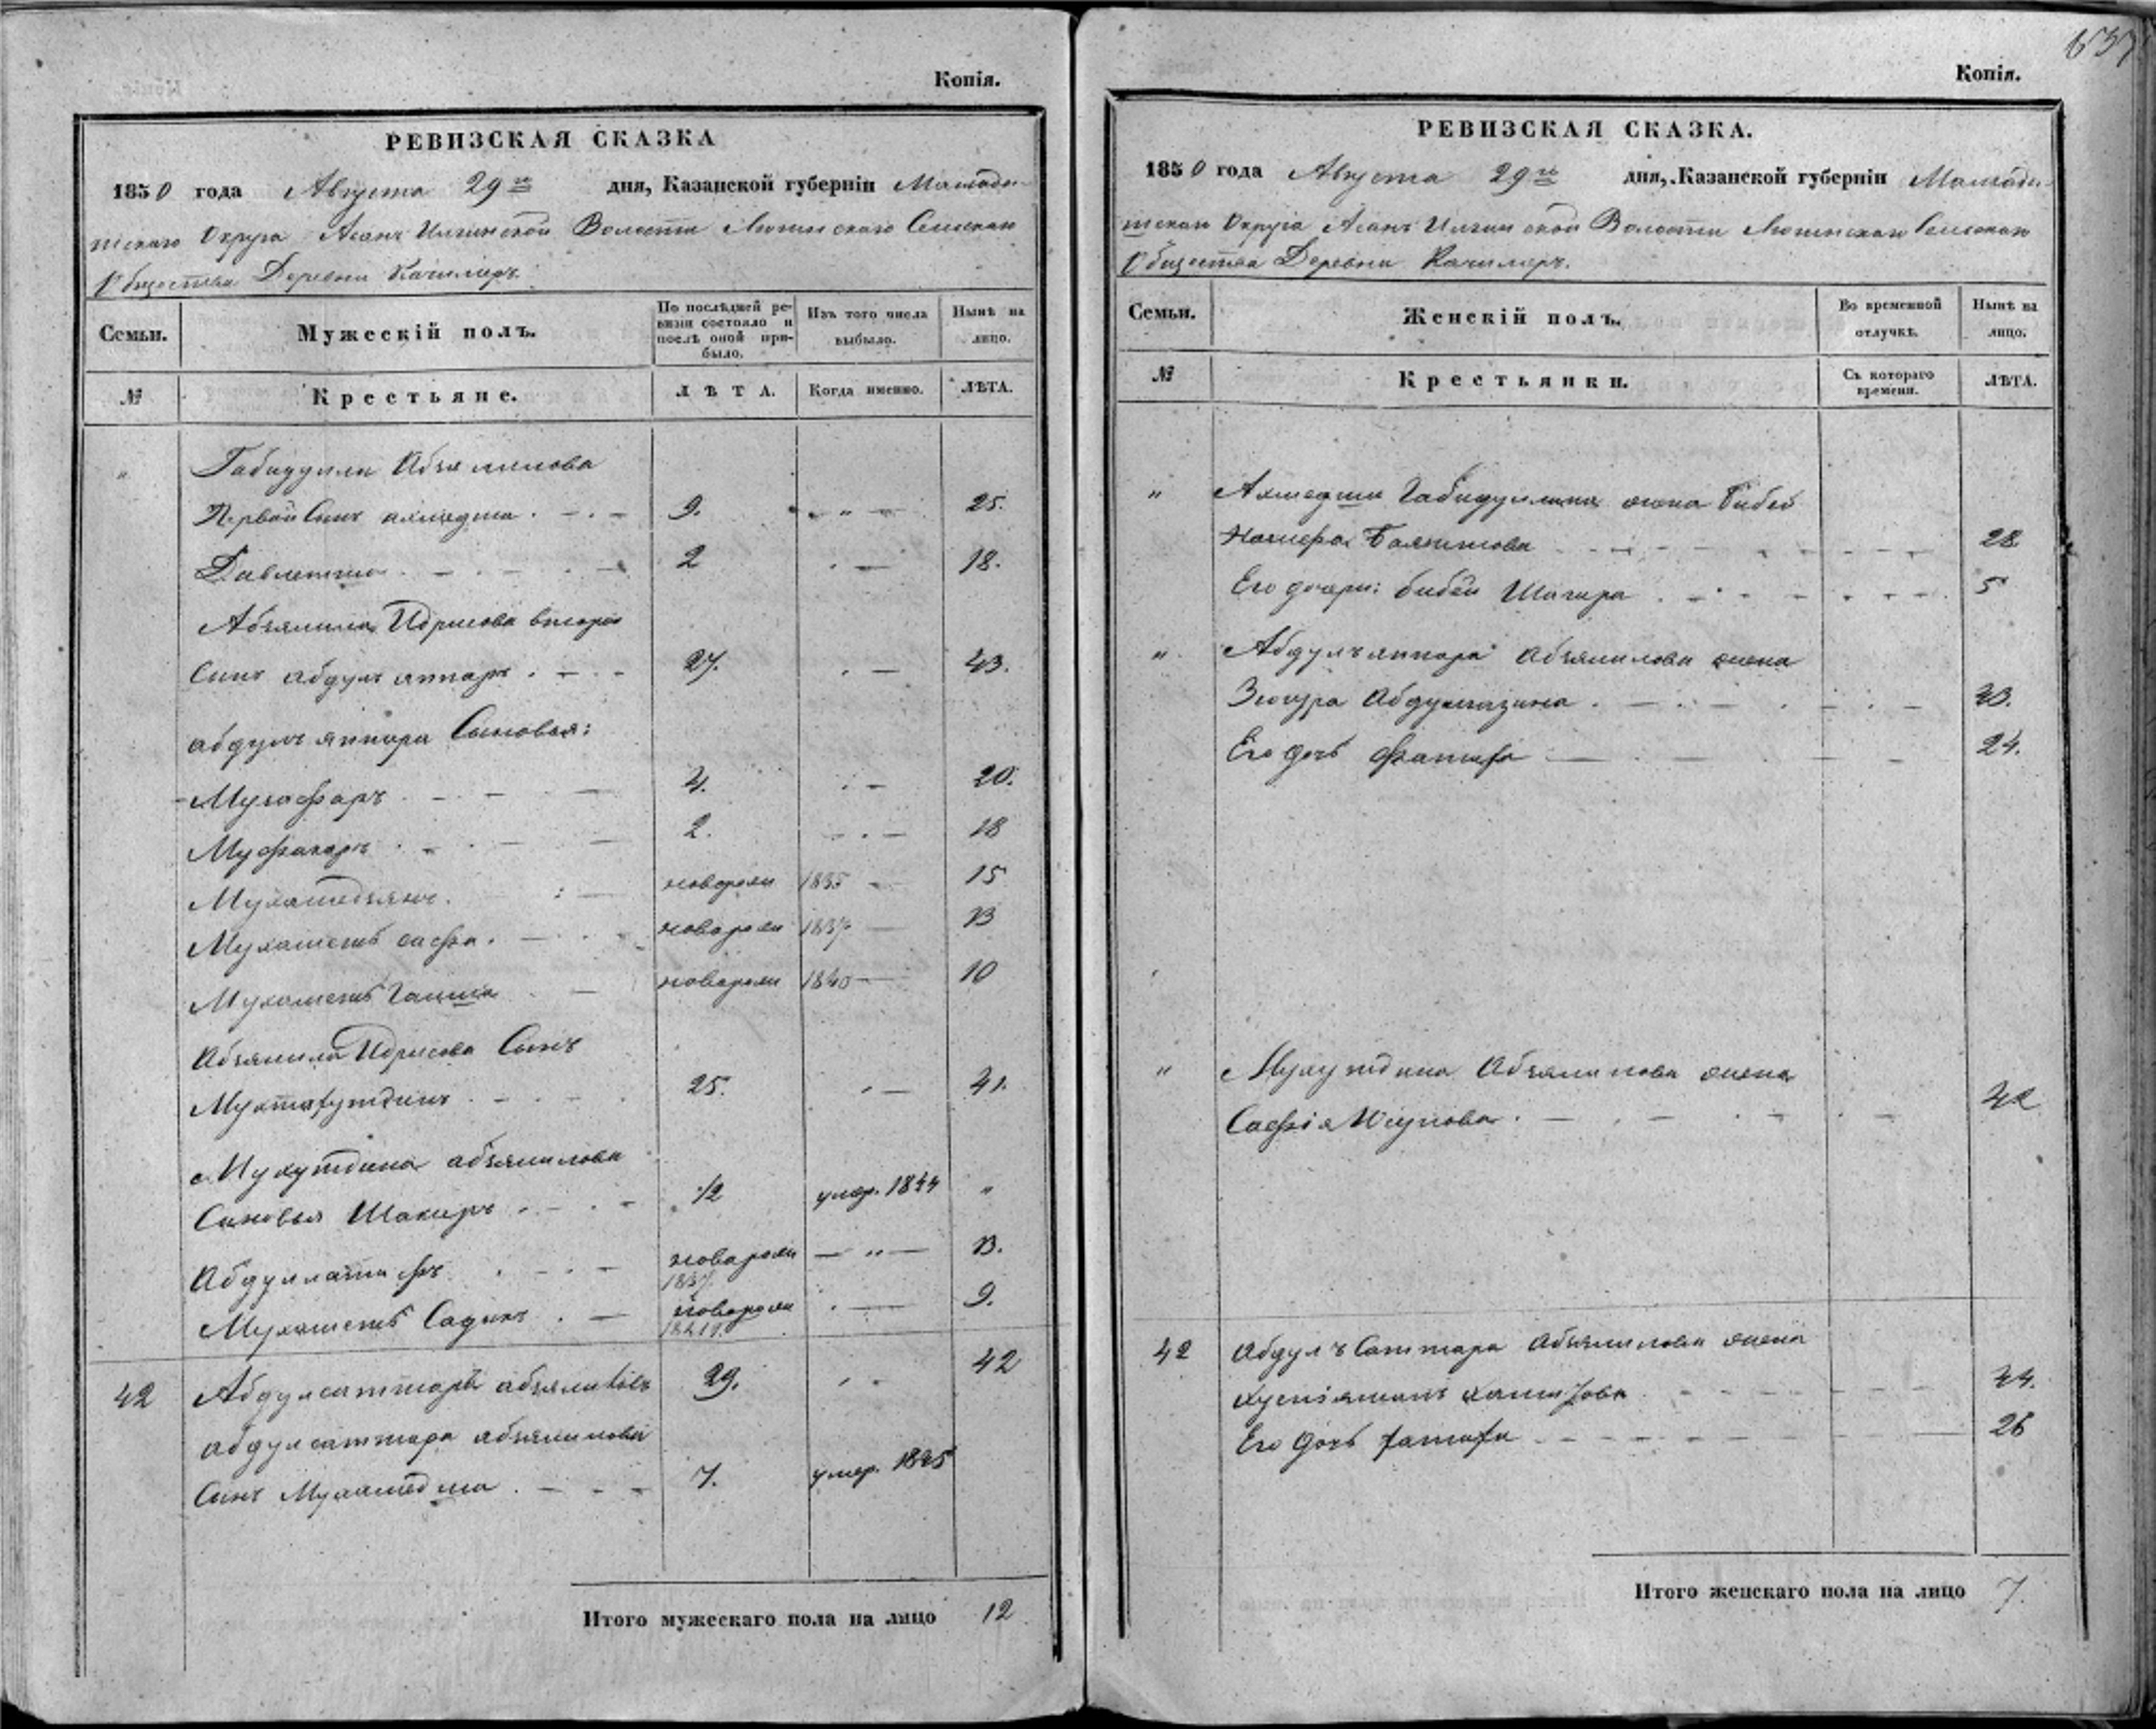 Копія.
РЕВИЗСКАЯ СКАЗКА
1850 года Августа 29го дня, Казанской губерніи Мамады-
шскаго Округа Асанъ Илгинской Волости Сельскаго
Общества Деревни Качимеръ.
Семьи.
Мужескій полъ.
По послѣдней ре-
визіи состояло и
послѣ оной при-
было.
Изъ того числа
выбыло.
Нынѣ на
лицо.
№
Крестьяне.
ЛѢТА.
Когда именно.
ЛѢТА.
" Габидулли Абзялилова
Первой Сынъ ахмедша 9. " 25.
Давлетша 2 18.
Абзялила Идрисова второй
Сынъ абдулъ яппаръ 27. 43.
абдулъ яппара Сыновья:
Музафаръ 4. 20.
Мусфахаръ 2. 18
Мухаметзянъ новорож 1835 15
Мухаметъ сафа новорож 1837 13
Мухаметъ Ганша новорож 1840 10
Абзялила Идрисова Сынъ
25. 41.
Мухутдина абзялилова
Сыновья Шакиръ 1/2 умер. 1844 "
Абдуллатифъ новорож 1837 " 13.
Мухаметъ Садыкъ новорож 1841 9.
42 Абдулсаттаръ абзялиловъ 29. 42
абдулсаттара абзялилова
Сынъ Мухаметша 7. умер. 1845
Итого мужескаго пола на лицо 12
637
Копія.
РЕВИЗСКАЯ СКАЗКА.
1850 года Августа 29го дня, Казанской губерніи Мамады-
шскаго Округа Асанъ Илгинской Волости Сельскаго
Общества Деревни Качимеръ.
Семьи.
Женскій полъ.
Во временной
отлучкѣ.
Нынѣ на
лицо.
№
Крестьянки.
Съ котораго
времени.
ЛѢТА.
" Ахмедши Габидуллина жена Бибей
28
Его дочери: бибей Шагира 5
" Абдулъ яппара абзялилова жена
Зюгура 43.
Его дочь Фатифа 24.
" Мухутдина Абзялилова жена
Сафія Юсупова 42
42 Абдулъ Саттара Абзялилова жена
44.
Его дочь 26
Итого женскаго пола на лицо 7.